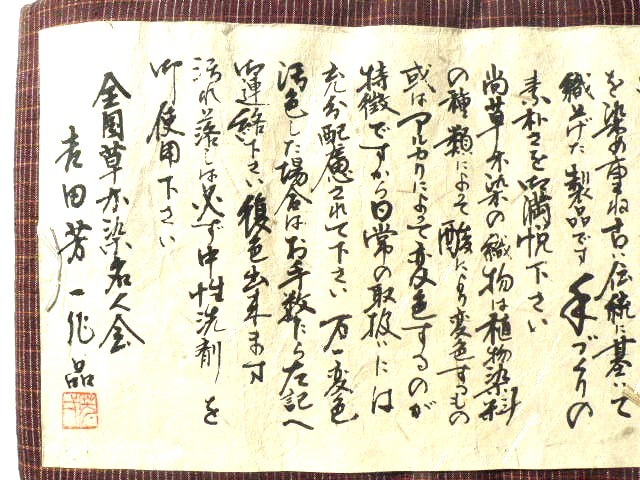 を染め重ね古い伝統に基いて
織上げた製品です 手づくりの
素朴さを御満悦下さい
尚草木染の織物は植物染料
の種類によって酸により変色すもの
或はアルカリによって変色するのが
特徴ですから日常の取扱いには
充分配慮されて下さい 万一変色
汚色した場合はお手数たら左記へ
御連絡下さい 復色出来ます
汚れ落しは必ず中性洗剤を
御使用下さい
全国草木染名人会
吉田芳一作品